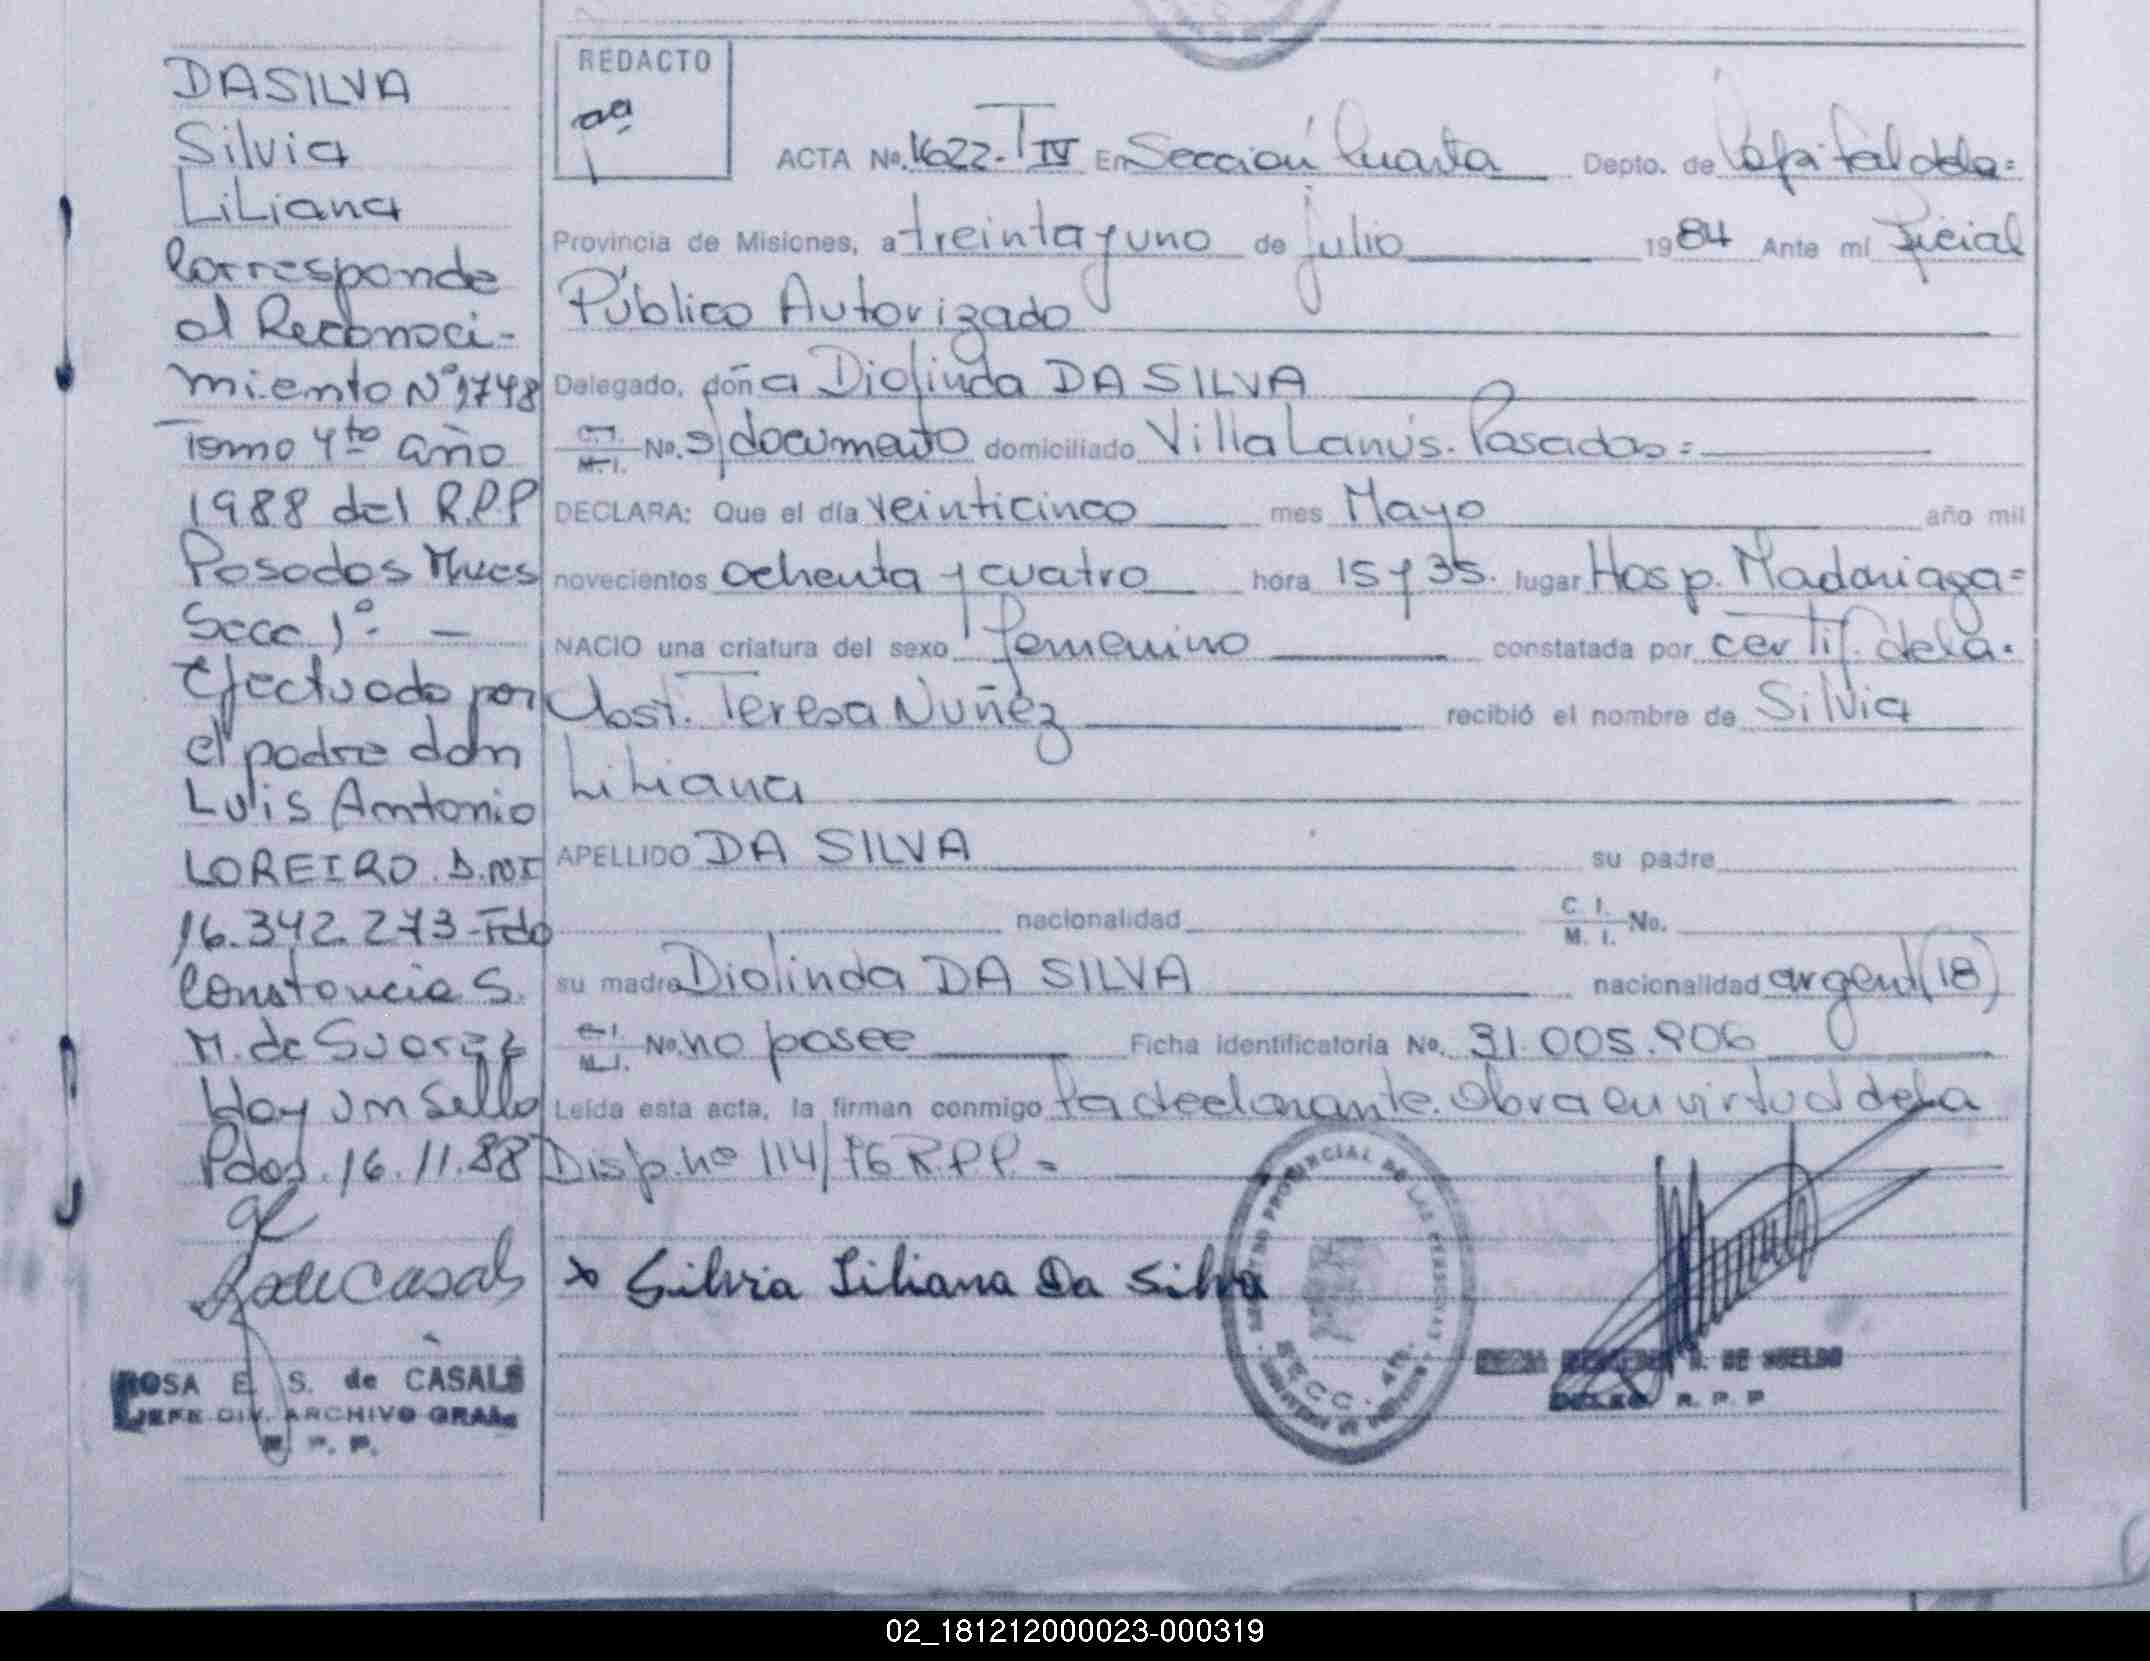 DASILVA
Silvia
Liliana
Corresponde
al Reconoci-
miento Nº 1748
Tomo 4to año
1988 del R.P.P
Posadas Mnes
Secc 1º. —
Efectuado por
el padre don
Luis Antonio
LOREIRO. D.NI
16.342.273-Fdo
Constancia S.
M. de Suarez
Hay un Sello
Pdas. 16.11.88
ROSA E. S. de CASALS
JEFE DIV. ARCHIVO GRAL.
R. P. P.
REDACTO
ACTA No. 1622. T IV En Sección Cuarta Depto. de Capital de la=
Provincia de Misiones, a treinta y uno de julio 1984 Ante mí Oficial
Público Autorizado
Delegado, doña Diolinda DA SILVA
C.I. M.I. No. s/documento domiciliado Villa Lanús. Posadas=
DECLARA: Que el día veinticinco mes Mayo año mil
novecientos ochenta y cuatro hora 15 y 35. lugar Hosp. Madariaga=
NACIO una criatura del sexo femenino constatada por certif. de la.
Obst. Teresa Nuñez recibió el nombre de Silvia
Liliana
APELLIDO DA SILVA su padre
nacionalidad C. I. M. I. No.
su madre Diolinda DA SILVA nacionalidad argent (18)
C.I. M.I. No. no posee Ficha identificatoria No. 31.005.906
Leída esta acta, la firman conmigo la declarante. Obra en virtud de la
Disp. nº 114/76 R.P.P.=
x Silvia Liliana Da Silva
REGISTRO PROVINCIAL DE LAS PERSONAS
SECC. 4ta.
DE SUELDO
R. P. P
02_181212000023-000319